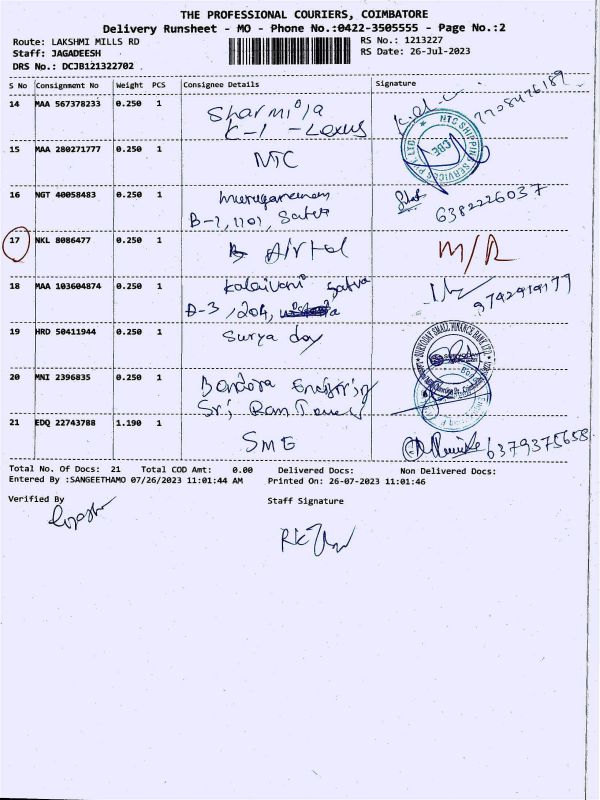 THE PROFESSIONAL COURIERS, COIMBATORE
Delivery Runsheet - MO - Phone No.:0422-3505555 - Page No.:2
Route: LAKSHMI MILLS RD
RS No.: 1213227
Staff: JAGADEESH
RS Date: 26-Jul-2023
DRS No.: DCJB121322702
S No Consignment No Weight PCS Consignee Details Signature
14 MAA 567378233 0.250 1 Sharmila
K-1 - Lexus
15 MAA 280271777 0.250 1 NTC
NTC SHIPPING SERVICES PVT. LTD. CBE
16 NGT 40058483 0.250 1 6382226037
B-2, 1101,
17 NKL 8086477 0.250 1 Airtel M/R
18 MAA 103604874 0.250 1 Kalaivani Satva 9742919177
D-3, 204,
19 HRD 50411944 0.250 1 Surya day
20 MNI 2396835 0.250 1
Sri Ram Tower
21 EDQ 22743788 1.190 1 SMG 6379375658
Total No. Of Docs: 21 Total COD Amt: 0.00 Delivered Docs: Non Delivered Docs:
Entered By :SANGEETHAMO 07/26/2023 11:01:44 AM Printed On: 26-07-2023 11:01:46
Verified By Staff Signature